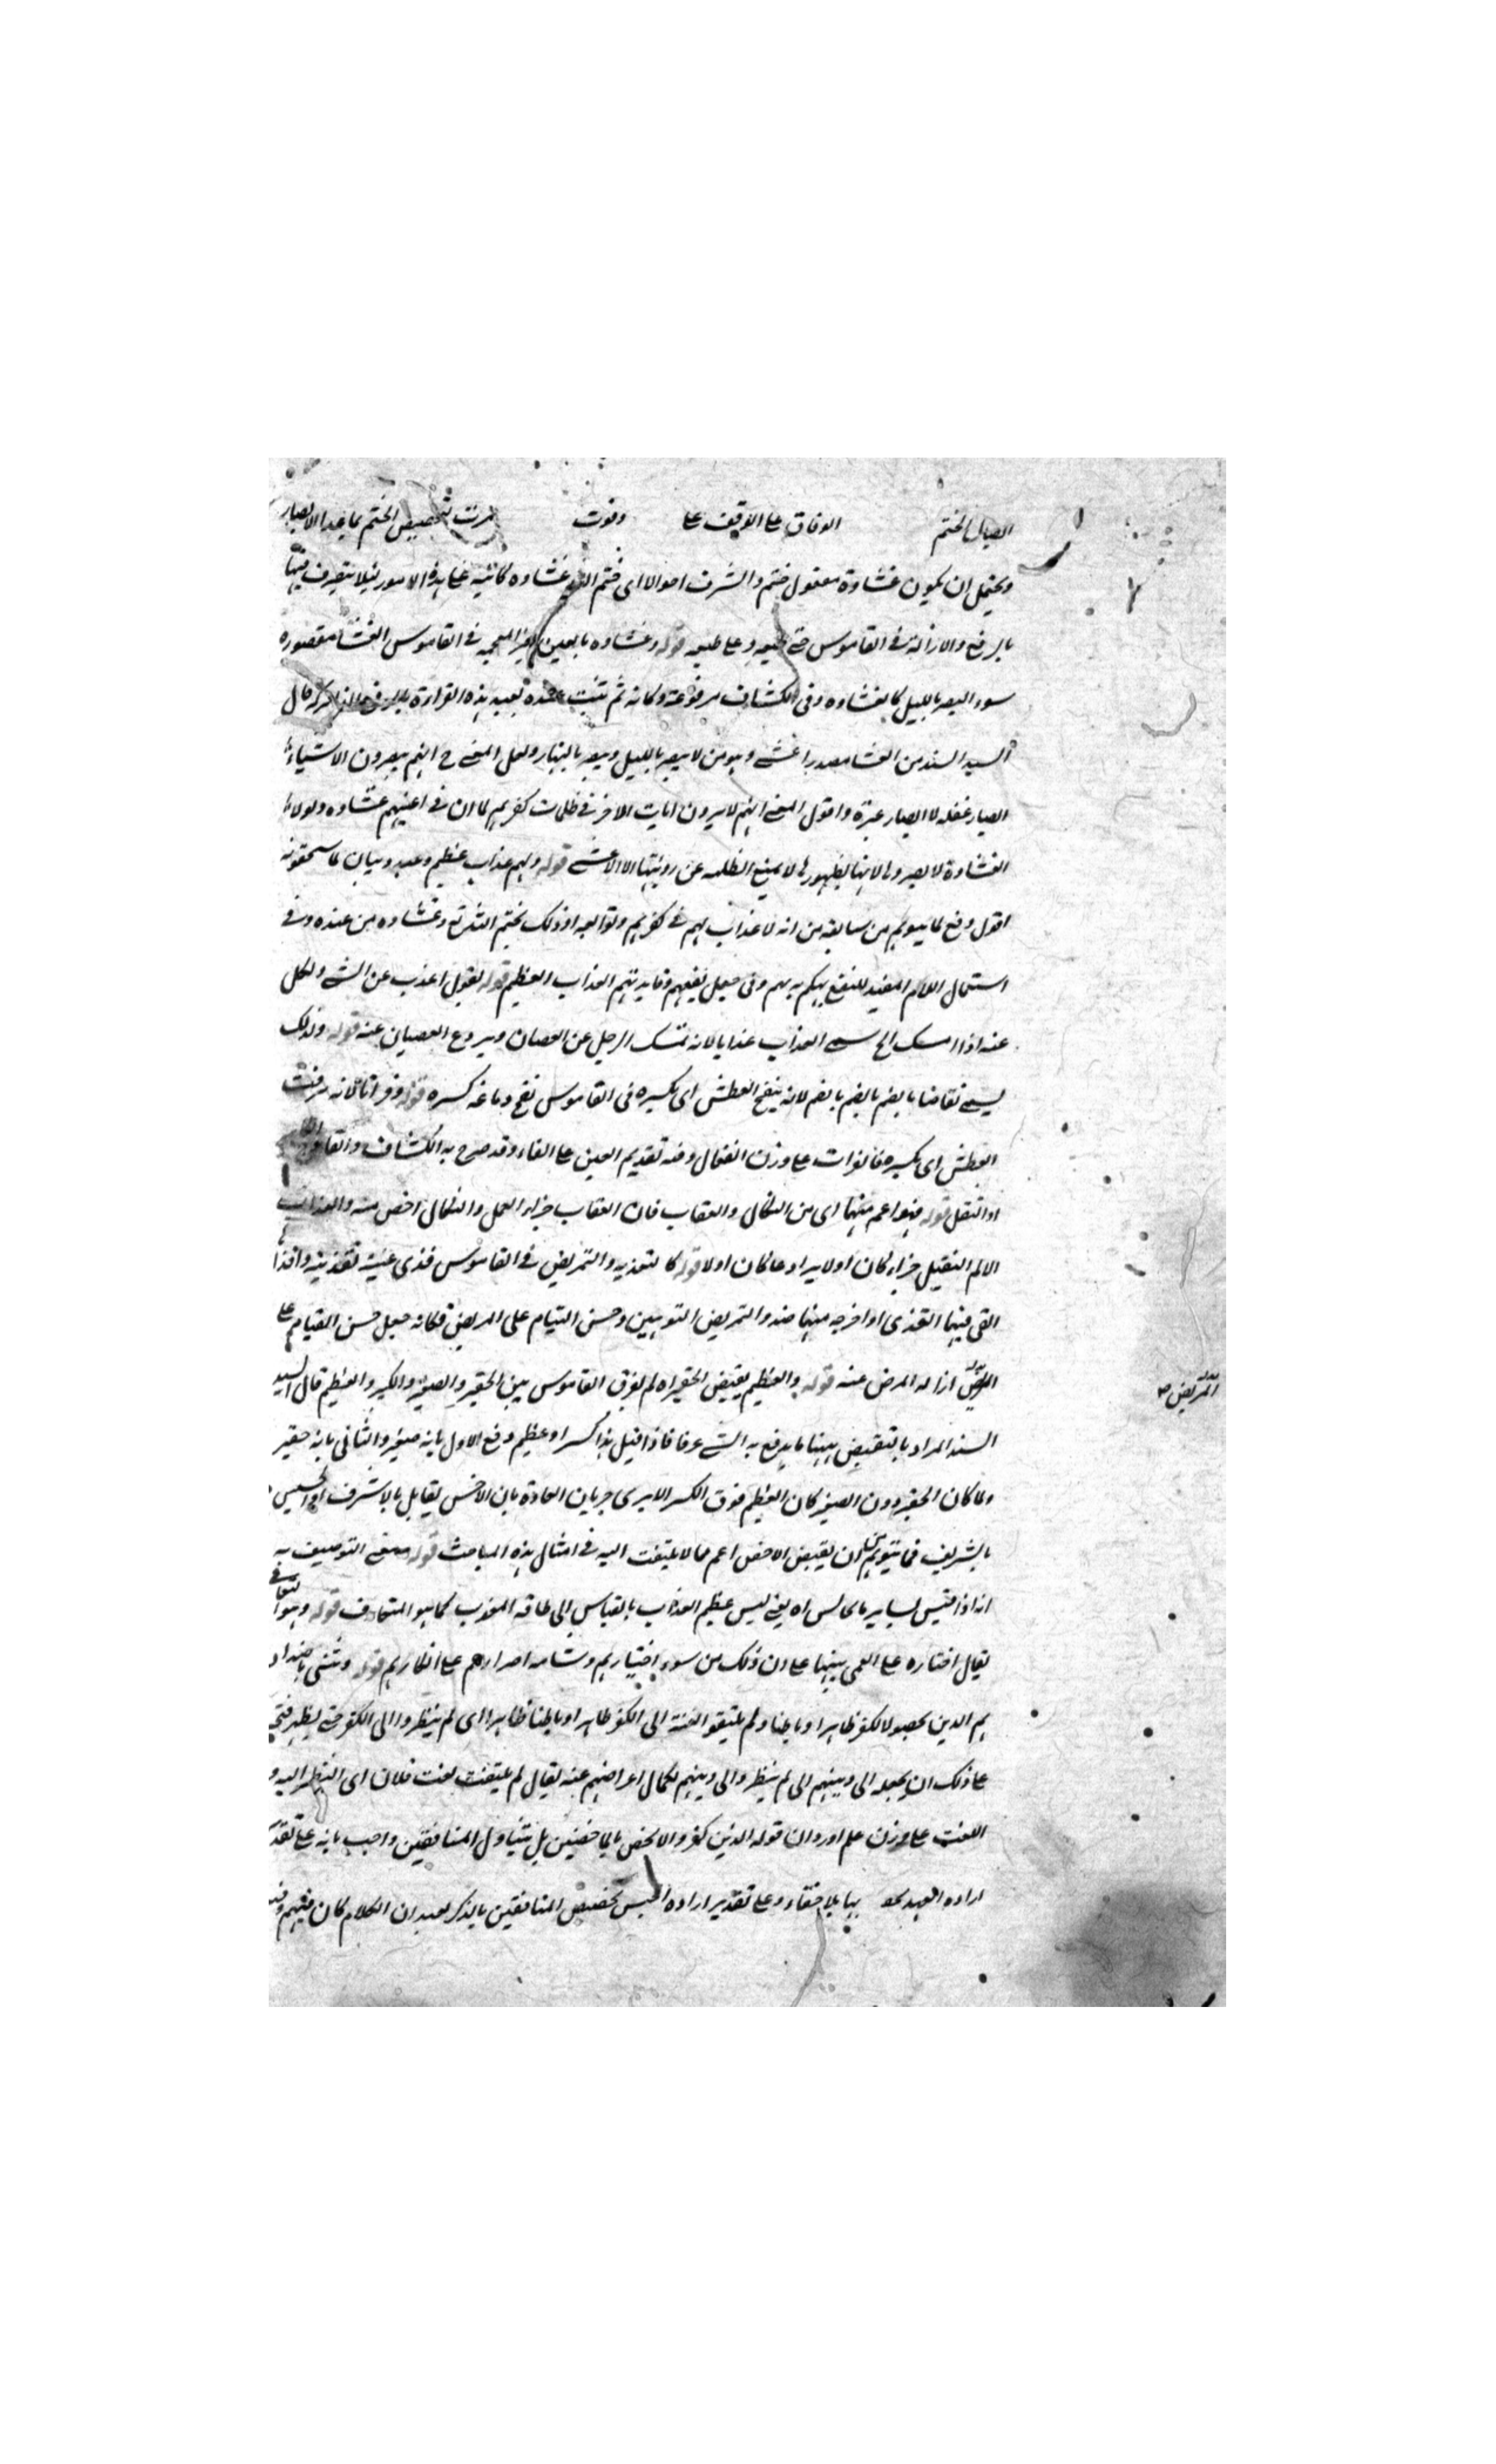 ايصال الختم الوفاق على الوقف على وفوت نكرت تخصيص الختم بما عدا الابصار
ويحتمل ان يكون غشاوة مفعول ختم والشرف احوالا اى ختم الله غشاوه كائنية على هذه الامور لئلا يتصرف فيها
بالرفع والازالة فى القاموس ختمه وعلى طبعه قوله وغشاوه بالعين الغير المعجمه فى القاموس العشا مقصوره
سوء البصر بالليل كالعشاوه وفى الكشاف مرفوعة وكانه ثم تثبت عنده بعيد هذه القراءة قال
السيد السند من العشا مصدر اعشى وهو من لا يبصر بالليل ويبصر بالنهار ولعل المعنى ح انهم يبصرون الاشياء
ابصار غفله لا ابصار عبرة واقول المعنى انهم لا يرون ايات الاخر فى ظلمات كفرهم لما ان فى اعينهم عشاوه ولولا
العشاوة لابصروها لانها لظهورها لا يمنع الظلمه عن رويتها الا الاعشى قوله ولهم عذاب عظيم وعيد وبيان لما يستحقونه
اقول دفع لما يتوهم من سابقه من انه لا عذاب لهم فى كفرهم وتوابعه اذ ذلك بختم الله تع وغشاوه من عنده وفى
استعمال اللام المفيد للنفع تهكم بهم وفى جعل نفعهم وفايدتهم العذاب العظيم قوله تقول اعذب عن الشى ونكل
عنه اذا امسك الخ سمى العذاب عذابا لانه تمسك الرجل عن العصيان ويردع العصيان عنه قوله ولذلك
يسمى نقاخا بالضم لانه ينقخ العطش اى يكسره فى القاموس نقخ دماغه كسره قوله وفراتا لانه يرفت
العطش اى يكسره فالفرات على وزن العفال وفيه تقديم العين على الفاء وقد صرح به الكشاف والقاموس
او النقل قوله فهو اعم منهما اى من النكال والعقاب فان العقاب جزاء العمل والنكال اخص منه والعذاب
الالم الثقيل جزاء كان اولا يرادعا كان اولا قوله كالتقذيه والتمريض فى القاموس قذى عينه تقذية واقذاها
القى فيها القذى او اخرجه منها ضد والتمريض التوهين وحسن القيام على المريض فكانه جعل حسن القيام على
المريض ازاله المرض عنه قوله والعظيم نقيض الحقير اه لم يفرق القاموس بين الحقير والصغير والكبير والعظيم قال السيد
التمريض صح
السند المراد بالنقيض هينا ما يدفع به الشى عرفا فاذا قيل هذا كبير او عظيم دفع الاول بانه صغير والثانى بانه حقير
ولما كان الحقير دون الصغير كان العظيم فوق الكبير الا يرى جريان العادة بان الاخس يقابل بالاشرف والخسيس
بالشريف فما يتوهم من ان نقيض الاخص اعم مما لا يلتفت اليه فى امثال هذه المباحث قوله معنى التوصيف به
انه اذا قيس بساير ما يجانسه اه يعنى ليس عظيم العذاب بالقياس الى طاقه المعذب كما هو المتعارف قوله وهو التعامى
يقال اختاره على العمى تنبيها على ان ذلك من سوء اختيارهم وشامه اصرارهم على انكارهم قوله وثنى باضدادهم
هم الذين محضوا الكفر ظاهرا وباطنا ولم يلتفتوا لفته الى الكفر ظاهرا وباطنا ظاهرا اى لم ينظروا الى الكفر حتى يظهر قبحه
على ذلك ان يجعله الى دينهم اى لم ينظروا الى دينهم لكمال اعراضهم عنه يقال لم يلتفت لفت فلان اى النظر اليه و
اللفت على وزن علم اورد ان قوله الذين كفروا لا يخص بالماحضين بل يتناول المنافقين واجيب بانه على تقدير
اراده العهد بها بلا خفاء وعلى تقدير اراده الجنس تخصيص المنافقين بالذكر بعيد ان الكلام كان فيهم وفى